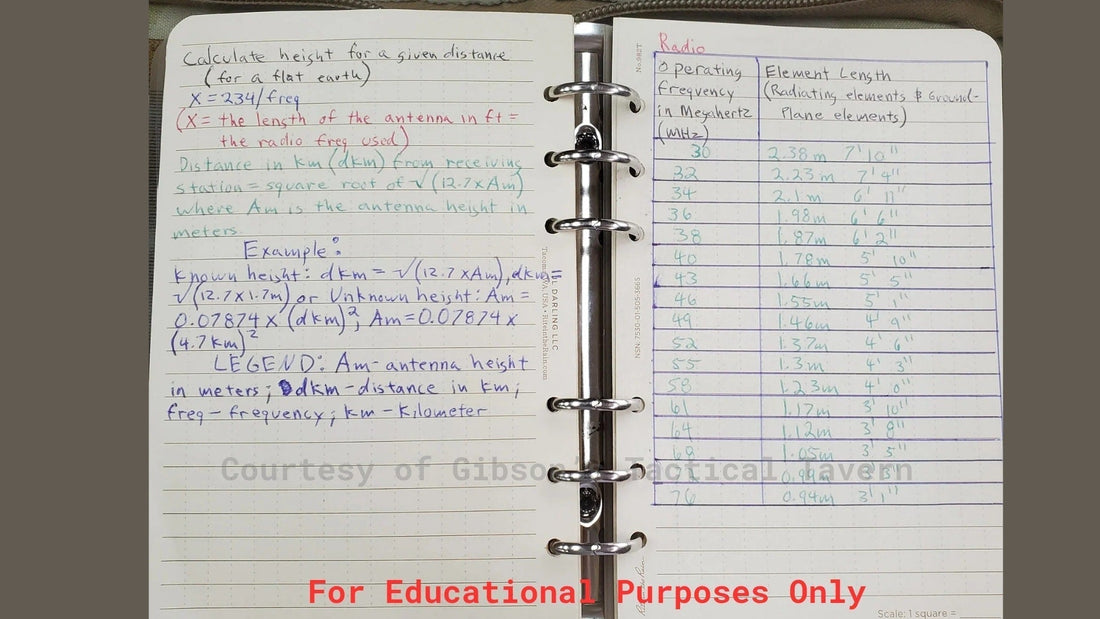 Calculate height for a given distance
(for a flat earth)
X = 234/freq
(X = the length of the antenna in ft =
the radio freq used)
Distance in km (dkm) from receiving
station = square root of √(12.7 x Am)
where Am is the antenna height in
meters.
Example:
Known height: dkm = √(12.7 x Am), dkm =
√(12.7 x 1.7m) or Unknown height: Am =
0.07874 x (dkm)², Am = 0.07874 x
(4.7 km)²
LEGEND: Am - antenna height
in meters; dkm - distance in km;
freq - frequency; km - Kilometer
DARLING LLC
Tacoma, WA, USA • RiteintheRain.com
No. 982T
NSN: 7530-01-505-3665
Radio
Operating frequency in Megahertz (MHz) Element Length (Radiating elements & Ground-Plane elements)
30 2.38m 7' 10"
32 2.23m 7' 4"
34 2.1m 6' 11"
36 1.98m 6' 6"
38 1.87m 6' 2"
40 1.78m 5' 10"
43 1.66m 5' 5"
46 1.55m 5' 1"
49 1.46m 4' 9"
52 1.37m 4' 6"
55 1.3m 4' 3"
58 1.23m 4' 0"
61 1.17m 3' 10"
64 1.12m 3' 8"
68 1.05m 3' 5"
3' 3"
76 0.94m 3' 1"
Courtesy of Tactical Tavern
For Educational Purposes Only
Scale: 1 square =